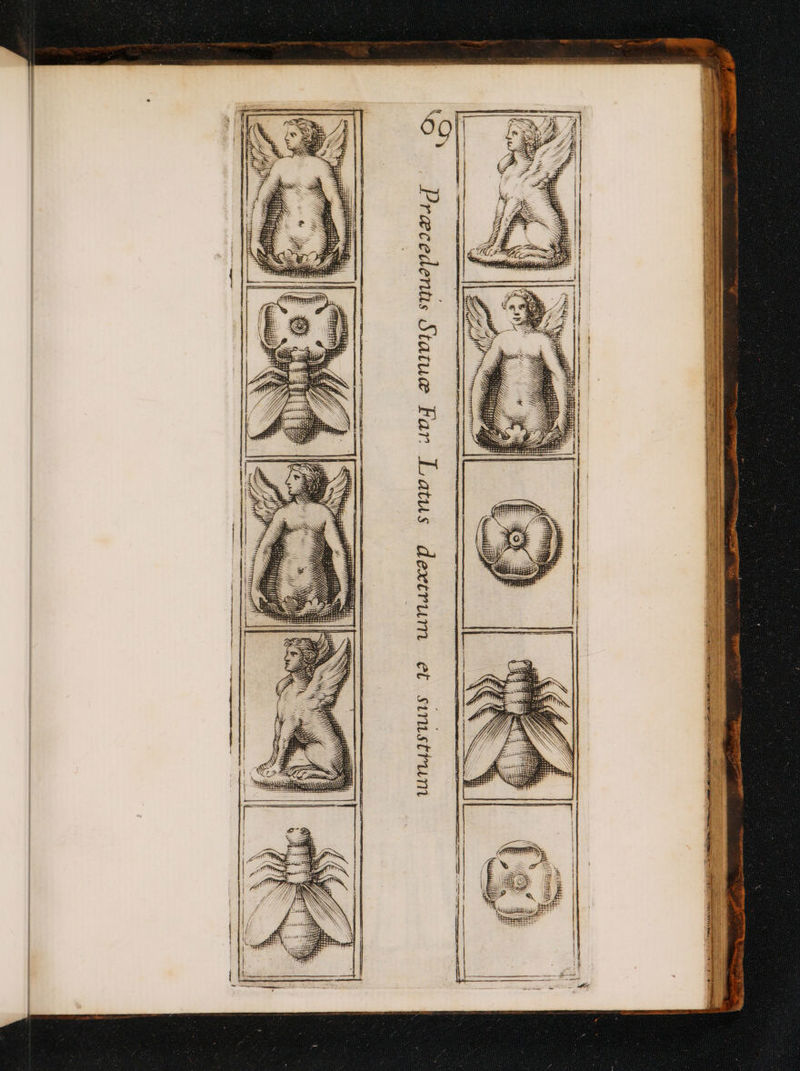 69
Præcedentis Statuæ Far. Latus dextrum et sinistrum